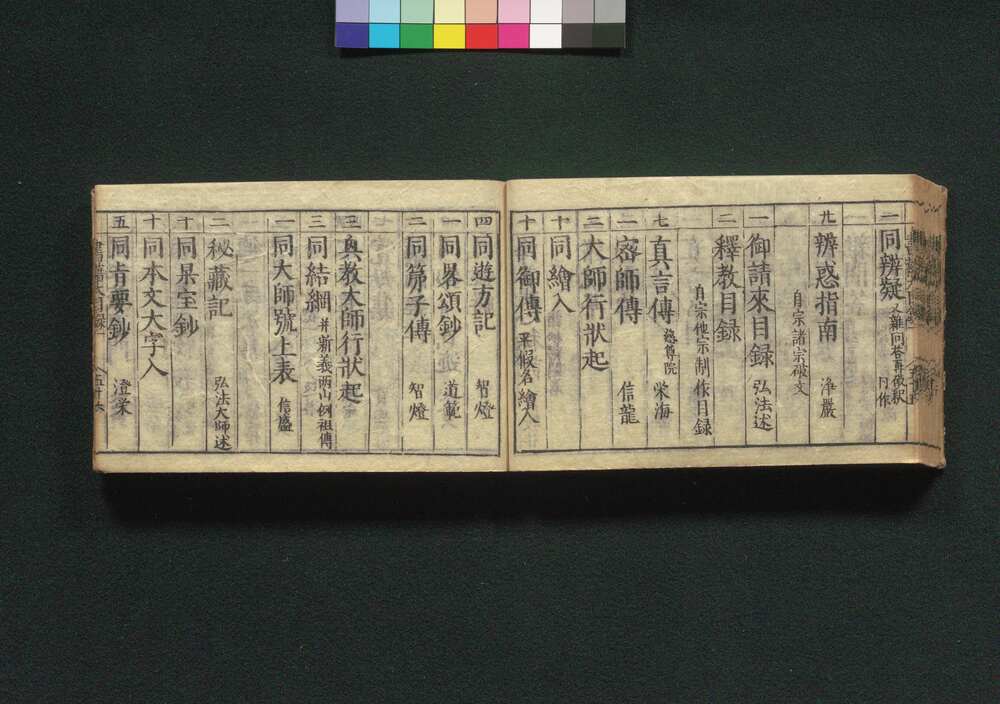 一 同辨疑 文難問荅再徴釈 同作
九 辨惑指南 浄嚴
自宗諸宗破文
一 御請來目録 弘法述
二 釋教目録
自宗他宗制作目録
七 真言傳 慈尊院 栄海
一 密師傳 信龍
三 大師行狀起
十 同繪入
十 同御傳 平假名繪入
四 同遊方記 智燈
一 同畧頌鈔 道範
二 同弟子傳 智燈
三 興教大師行狀起
三 同結綱 并新義兩山例祖傳
一 同大師號上表 信盛
二 秘藏記 弘法大師述
十 同杲宝鈔
十 同本文大字入
五 同肯要鈔 澄栄